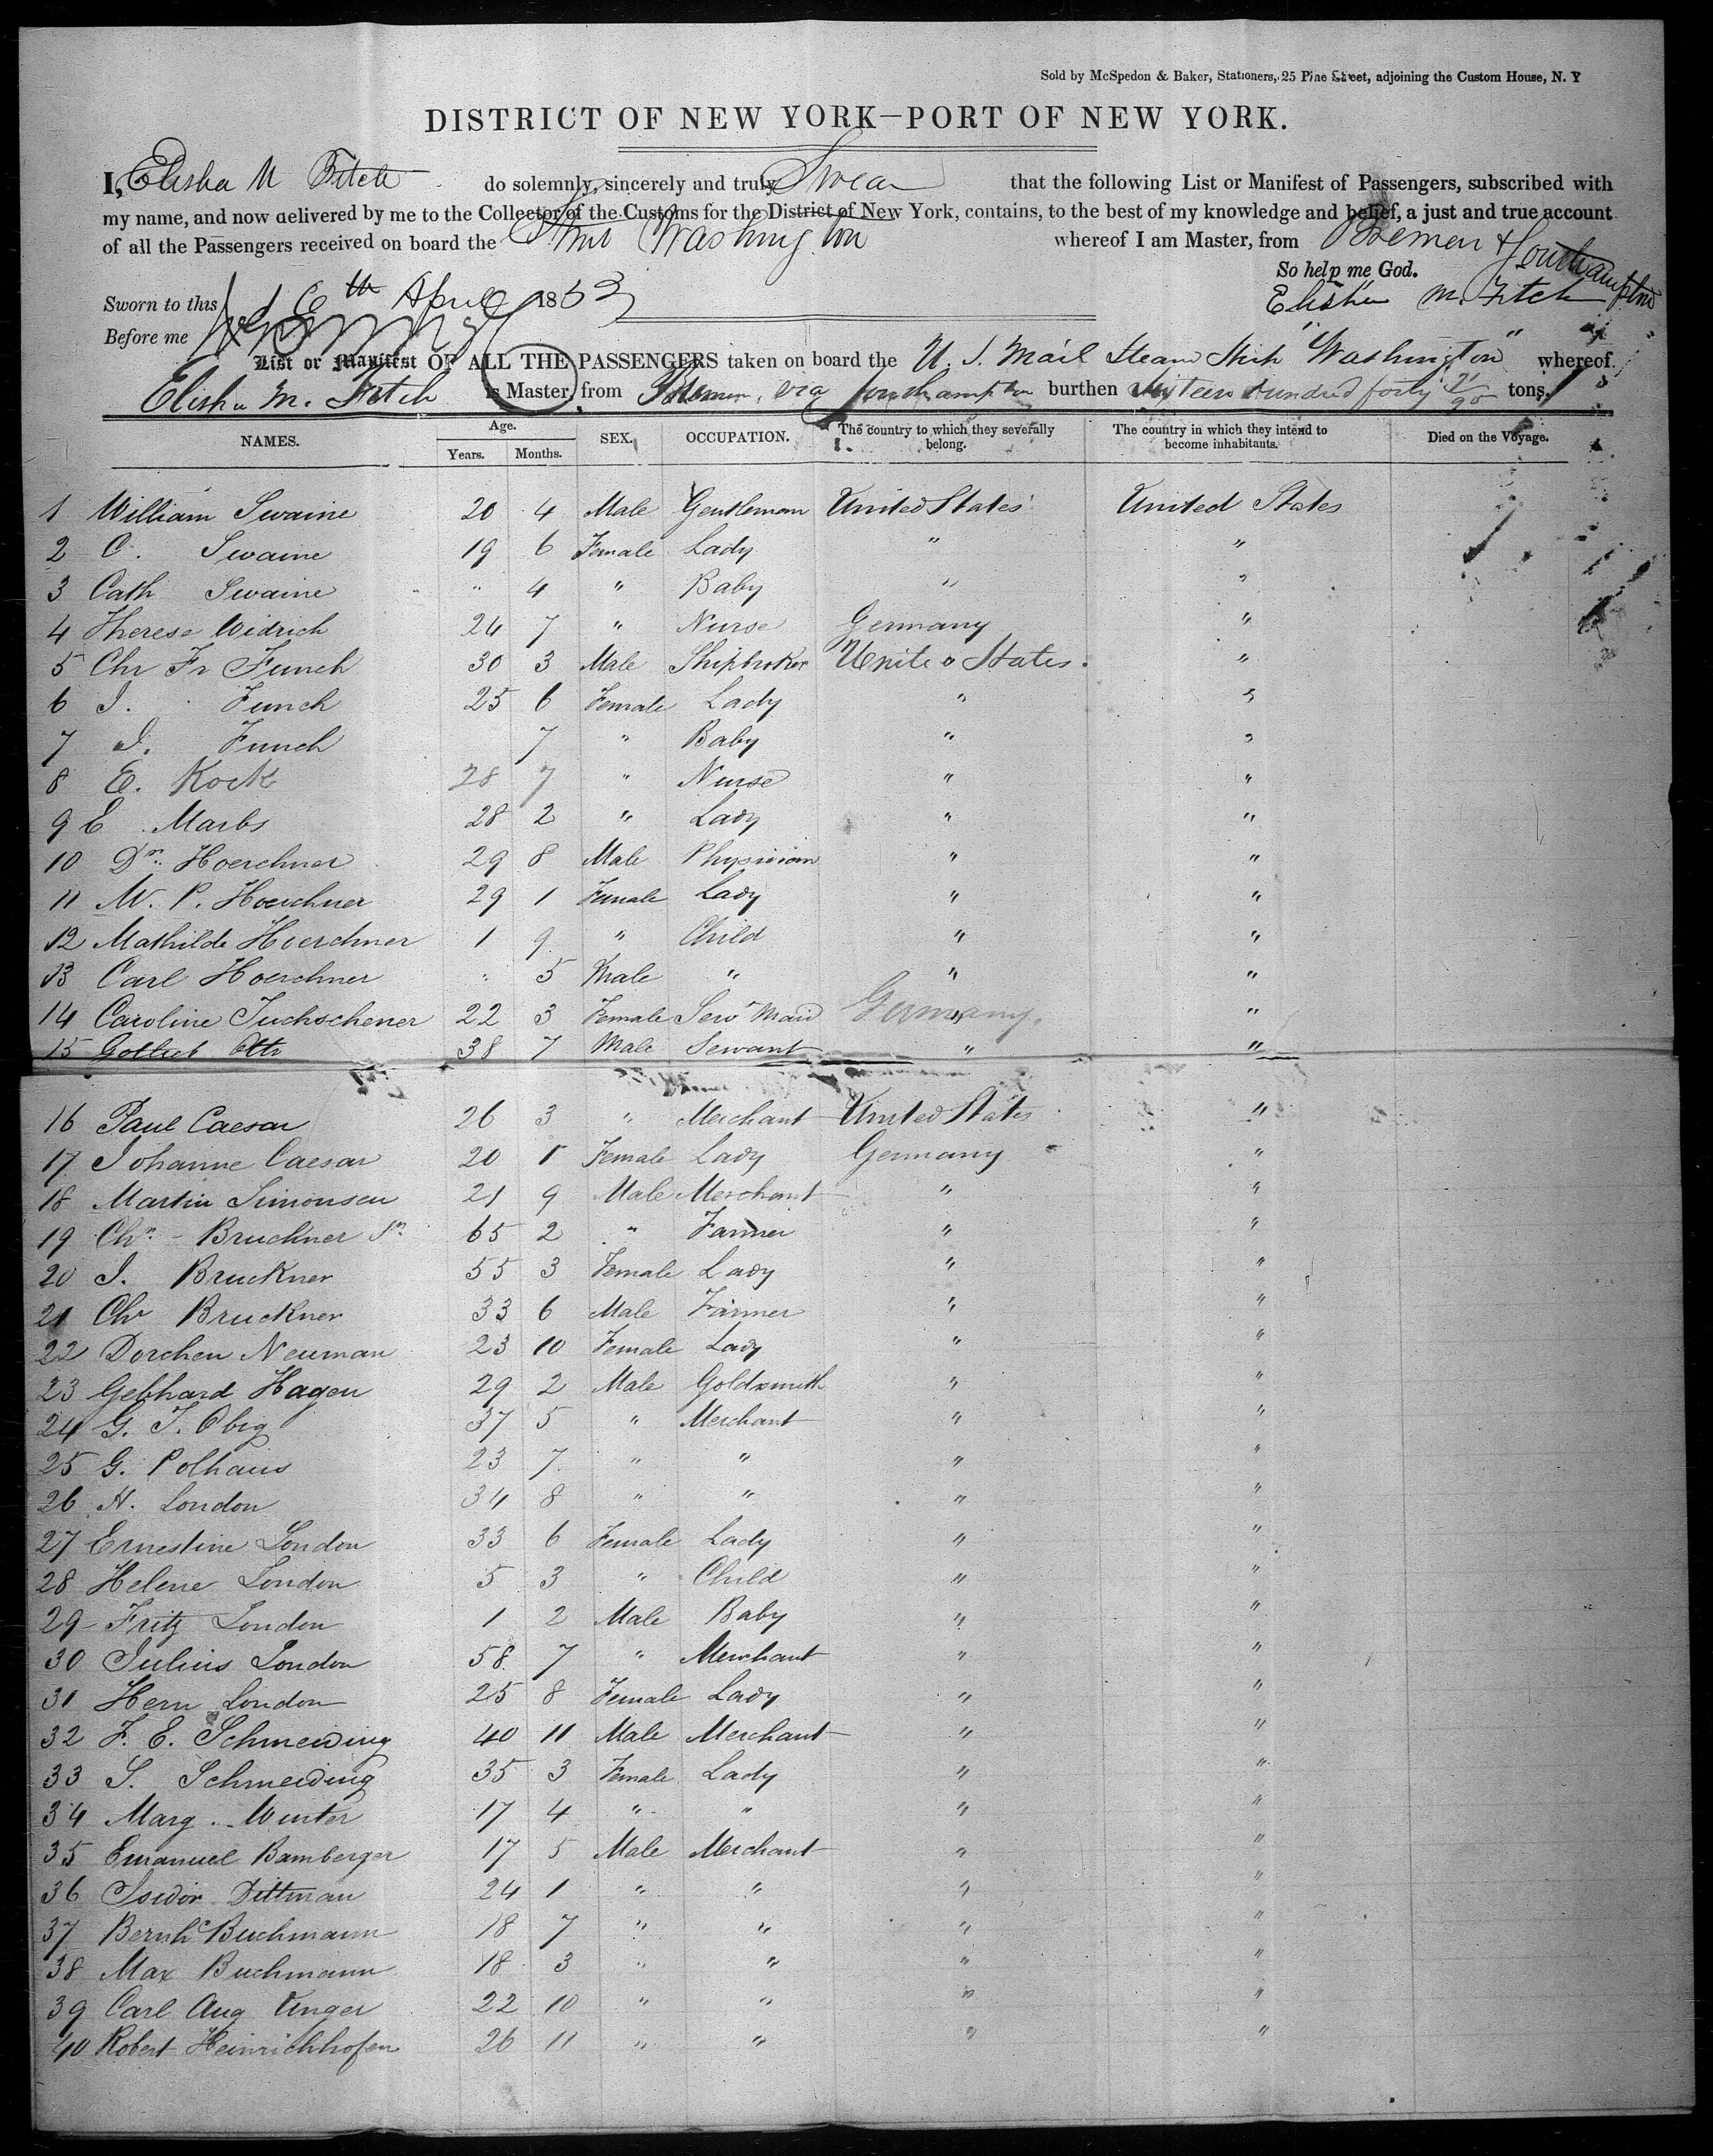 Sold by McSpedon & Baker, Stationers, 25 Pine Street, adjoining the Custom House, N. Y
DISTRICT OF NEW YORK—PORT OF NEW YORK.
I, Elisha M Fitch do solemnly, sincerely and truly Swear that the following List or Manifest of Passengers, subscribed with
my name, and now delivered by me to the Collector of the Customs for the District of New York, contains, to the best of my knowledge and belief, a just and true account
of all the Passengers received on board the Stmr Washington whereof I am Master, from Bremen & Southampton
So help me God.
Sworn to this 6th April 1853
Elisha M. Fitch
Before me
List or Manifest OF ALL THE PASSENGERS taken on board the U. S. Mail Steam Ship "Washington" whereof
Elisha M. Fitch is Master, from Bremen, via Southampton burthen Sixteen Hundred forty 71/95 tons.
NAMES. Age. Years. Months. SEX. OCCUPATION. The country to which they severally belong. The country in which they intend to become inhabitants. Died on the Voyage.
1 William Swaine 20 4 Male Gentleman United States United States
2 C. Swaine 19 6 Female Lady " "
3 Cath Swaine " 4 " Baby " "
4 Therese Widrich 24 7 " Nurse Germany "
5 Chr Fr Funch 30 3 Male Shipbroker United States. "
6 J. Funch 25 6 Female Lady " "
7 J. Funch 7 " Baby " "
8 E. Kock 28 7 " Nurse " "
9 E Marbs 28 2 " Lady " "
10 Dr. Hoerchner 29 8 Male Physician " "
11 M. P. Hoerchner 29 1 Female Lady " "
12 Mathilde Hoerchner 1 9 " Child " "
13 Carl Hoerchner " 5 Male " " "
14 Caroline Tuchschener 22 3 Female Serv Maid Germany "
15 Gotlieb Otto 38 7 Male Servant " "
16 Paul Caesar 26 3 " Merchant United States "
17 Johanne Caesar 20 1 Female Lady Germany "
18 Martin Simonsen 21 9 Male Merchant " "
19 Chr. Bruckner Sr 65 2 " Farmer " "
20 J. Bruckner 55 3 Female Lady " "
21 Chr Bruckner 33 6 Male Farmer " "
22 Dorchen Neuman 23 10 Female Lady " "
23 Gebhard Hagen 29 2 Male Goldsmith " "
24 G. J. Obig 37 5 " Merchant " "
25 G. Polhaus 23 7 " " " "
26 H. London 34 8 " " " "
27 Ernestine London 33 6 Female Lady " "
28 Helene London 5 3 " Child " "
29 Fritz London 1 2 Male Baby " "
30 Julius London 58 7 " Merchant " "
31 Hern London 25 8 Female Lady " "
32 F. E. Schmeiding 40 11 Male Merchant " "
33 S. Schmeiding 35 3 Female Lady " "
34 Marg. Winter 17 4 " " " "
35 Emanuel Bamberger 17 5 Male Merchant " "
36 Isidor Dittman 24 1 " " " "
37 Bernh Buchmann 18 7 " " " "
38 Max Buchmann 18 3 " " " "
39 Carl Aug Unger 22 10 " " " "
40 Robert Heinrichhofen 26 11 " " " "